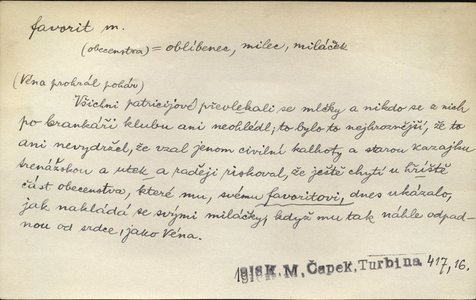 favorit m.
(obecenstva) = oblíbenec, milec, miláček
(Véna prohrál pohár)
Všichni patricijové převlekali se mlčky a nikdo se z nich
po brankáři klubu ani neohlédl; to bylo to nejhroznější, že to
ani nevydržel, že vzal jenom civilní kalhoty a starou
trenážskou a utek a raději riskoval, že ještě chytí u hřiště
část obecenstva, které mu, svému favoritovi, dnes ukázalo,
jak nakládá se svými miláčky, když mu tak náhle odpad-
nou od srdce, jako Véna.
K. M. Čapek, Turbina 417, 16.